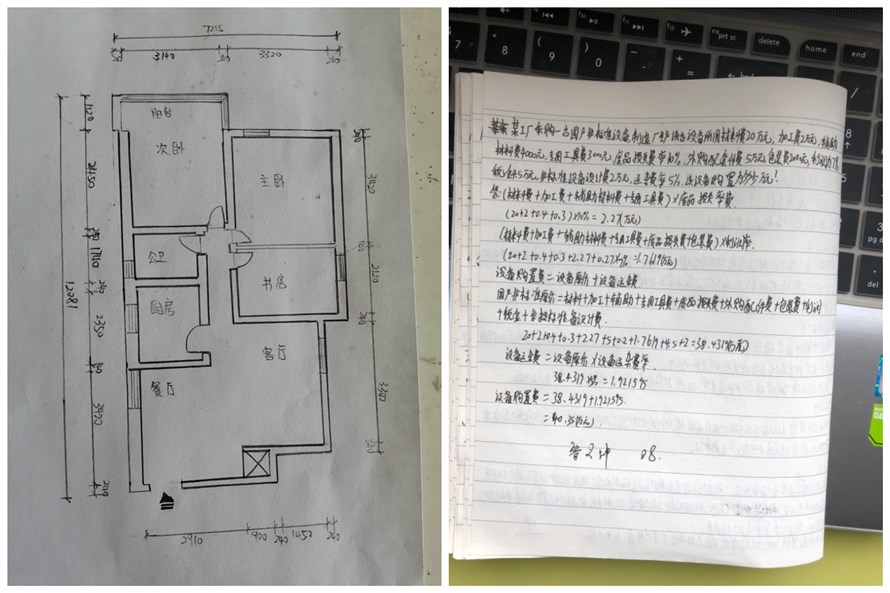 7215
3140
3320
阳台
次卧
主卧
公卫
书房
厨房
客厅
餐厅
1120
1710
2350
3420
12081
3340
2910
900
240
1450
240
某工厂采购一台国产非标准设备,制造厂生产该台设备所用材料费20万元,加工费2万元,辅助
材料费4000元,专用工具费3000元,废品损失费率10%,外购配套件费5万元,包装费2000元,利润率为7%,
税金4.5万元,非标准设备设计费2万元,运杂费率5%,该设备购置为多少万元?
答:(材料费+加工费+辅助材料费+专用工具费)×废品损失费率
(20+2+0.4+0.3)×10%=2.27(万元)
(材料费+加工费+辅助材料费+专用工具费+废品损失费+包装费)×利润率
设备购置费=设备原价+设备运杂费
国产非标准原价=材料+加工+辅助+专用工具费+废品损失费+外购配套件费+包装费+利润
+税金+非标准设备设计费
20+2+0.4+0.3+2.27+5+0.2+1.7619+4.5+2=38.4319(万元)
设备运杂费=设备原价×设备运杂费率
38.4319×5%=1.921595
设备购置费=38.4319+1.921595
=40.35(万元)
08.
prt sc
delete
home
end